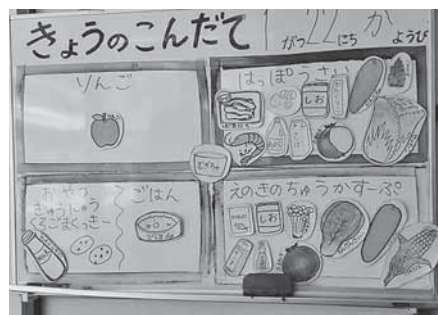 きょうのこんだて
1がつ22にち かようび
りんご
はっぽうさい
しお
むぎちゃ
おやつ
ぎゅうにゅう
くろごまくっきー
ごはん
えのきのちゅうかすーぷ
しお